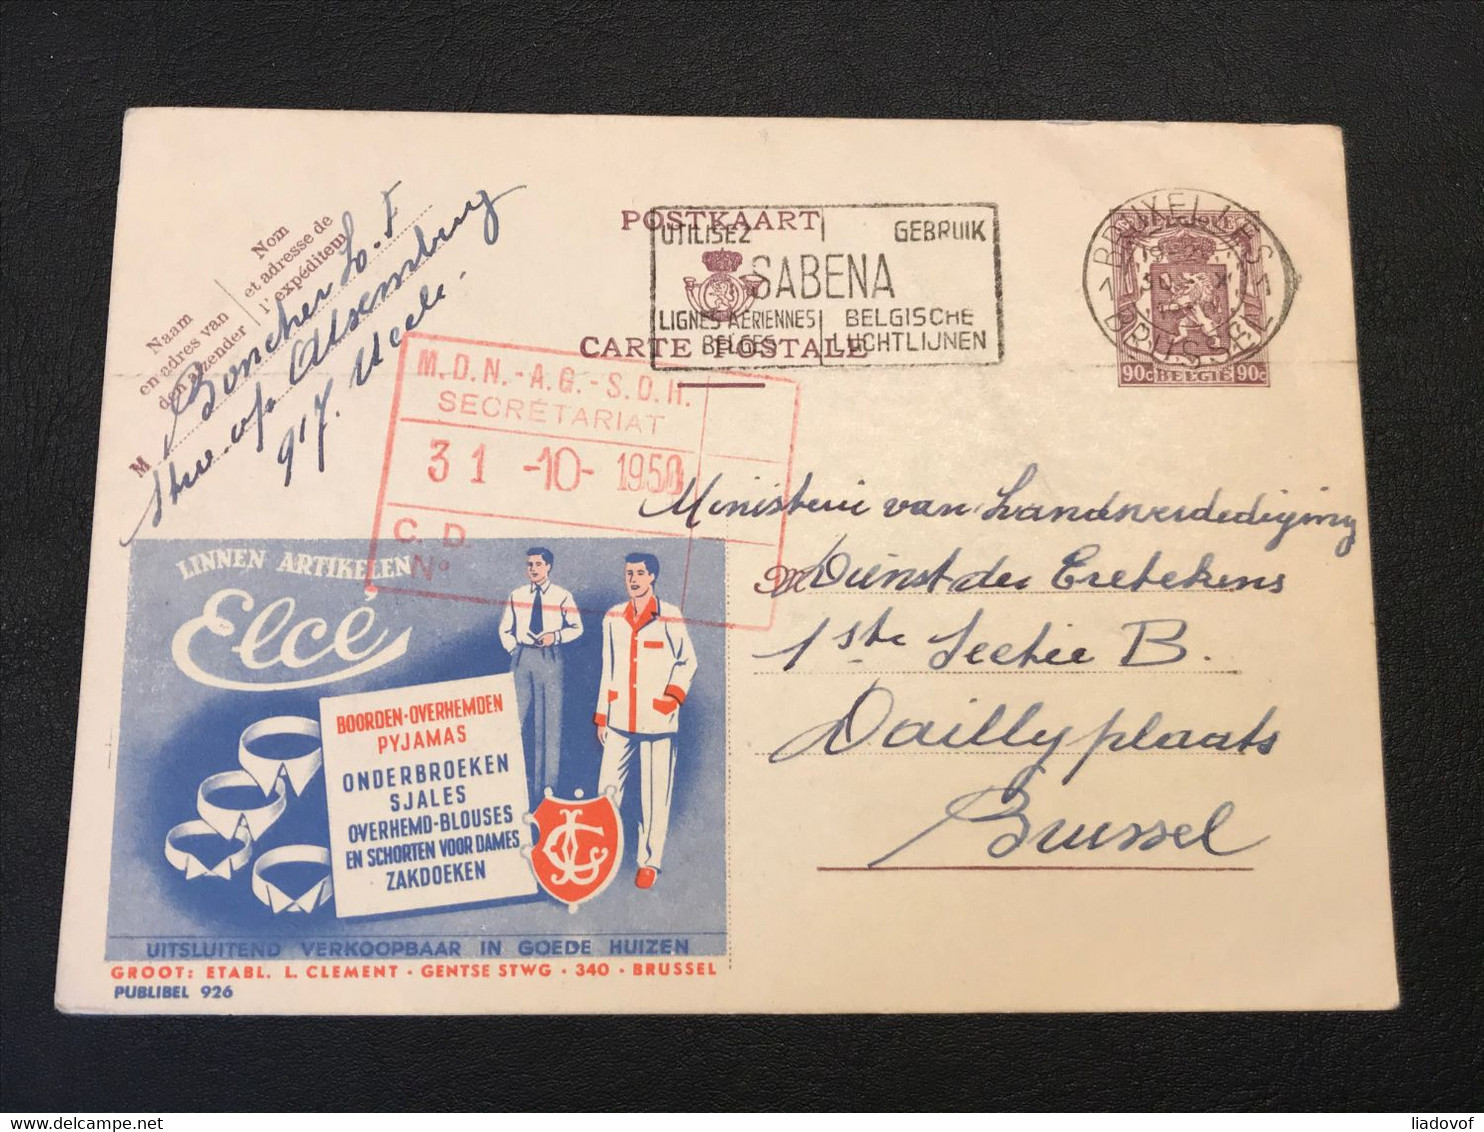 Nom
et adresse de
l'expéditeur
Naam
en adres van
den afzender
M Borcher L. F
Alsemberg
917. Uccle
POSTKAART
CARTE POSTALE
UTILISEZ GEBRUIK
SABENA
LIGNES AERIENNES BELGISCHE
BELGES LUCHTLIJNEN
BRUXELLES
BRUSSEL
90c BELGIË 90c
M.D.N.-A.G.-S.D.H.
SECRÉTARIAT
31 -10- 1950
C. D.
N°
Ministerie van Landsverdediging
M Dienst der Eretekens
1ste Sectie B.
Dailly plaats
Brussel
LINNEN ARTIKELEN
Elcé
BOORDEN-OVERHEMDEN
PYJAMAS
ONDERBROEKEN
SJALES
OVERHEMD-BLOUSES
EN SCHORTEN VOOR DAMES
ZAKDOEKEN
UITSLUITEND VERKOOPBAAR IN GOEDE HUIZEN
GROOT: ETABL. L. CLEMENT · GENTSE STWG · 340 · BRUSSEL
PUBLIBEL 926
delcampe.net
liadovof